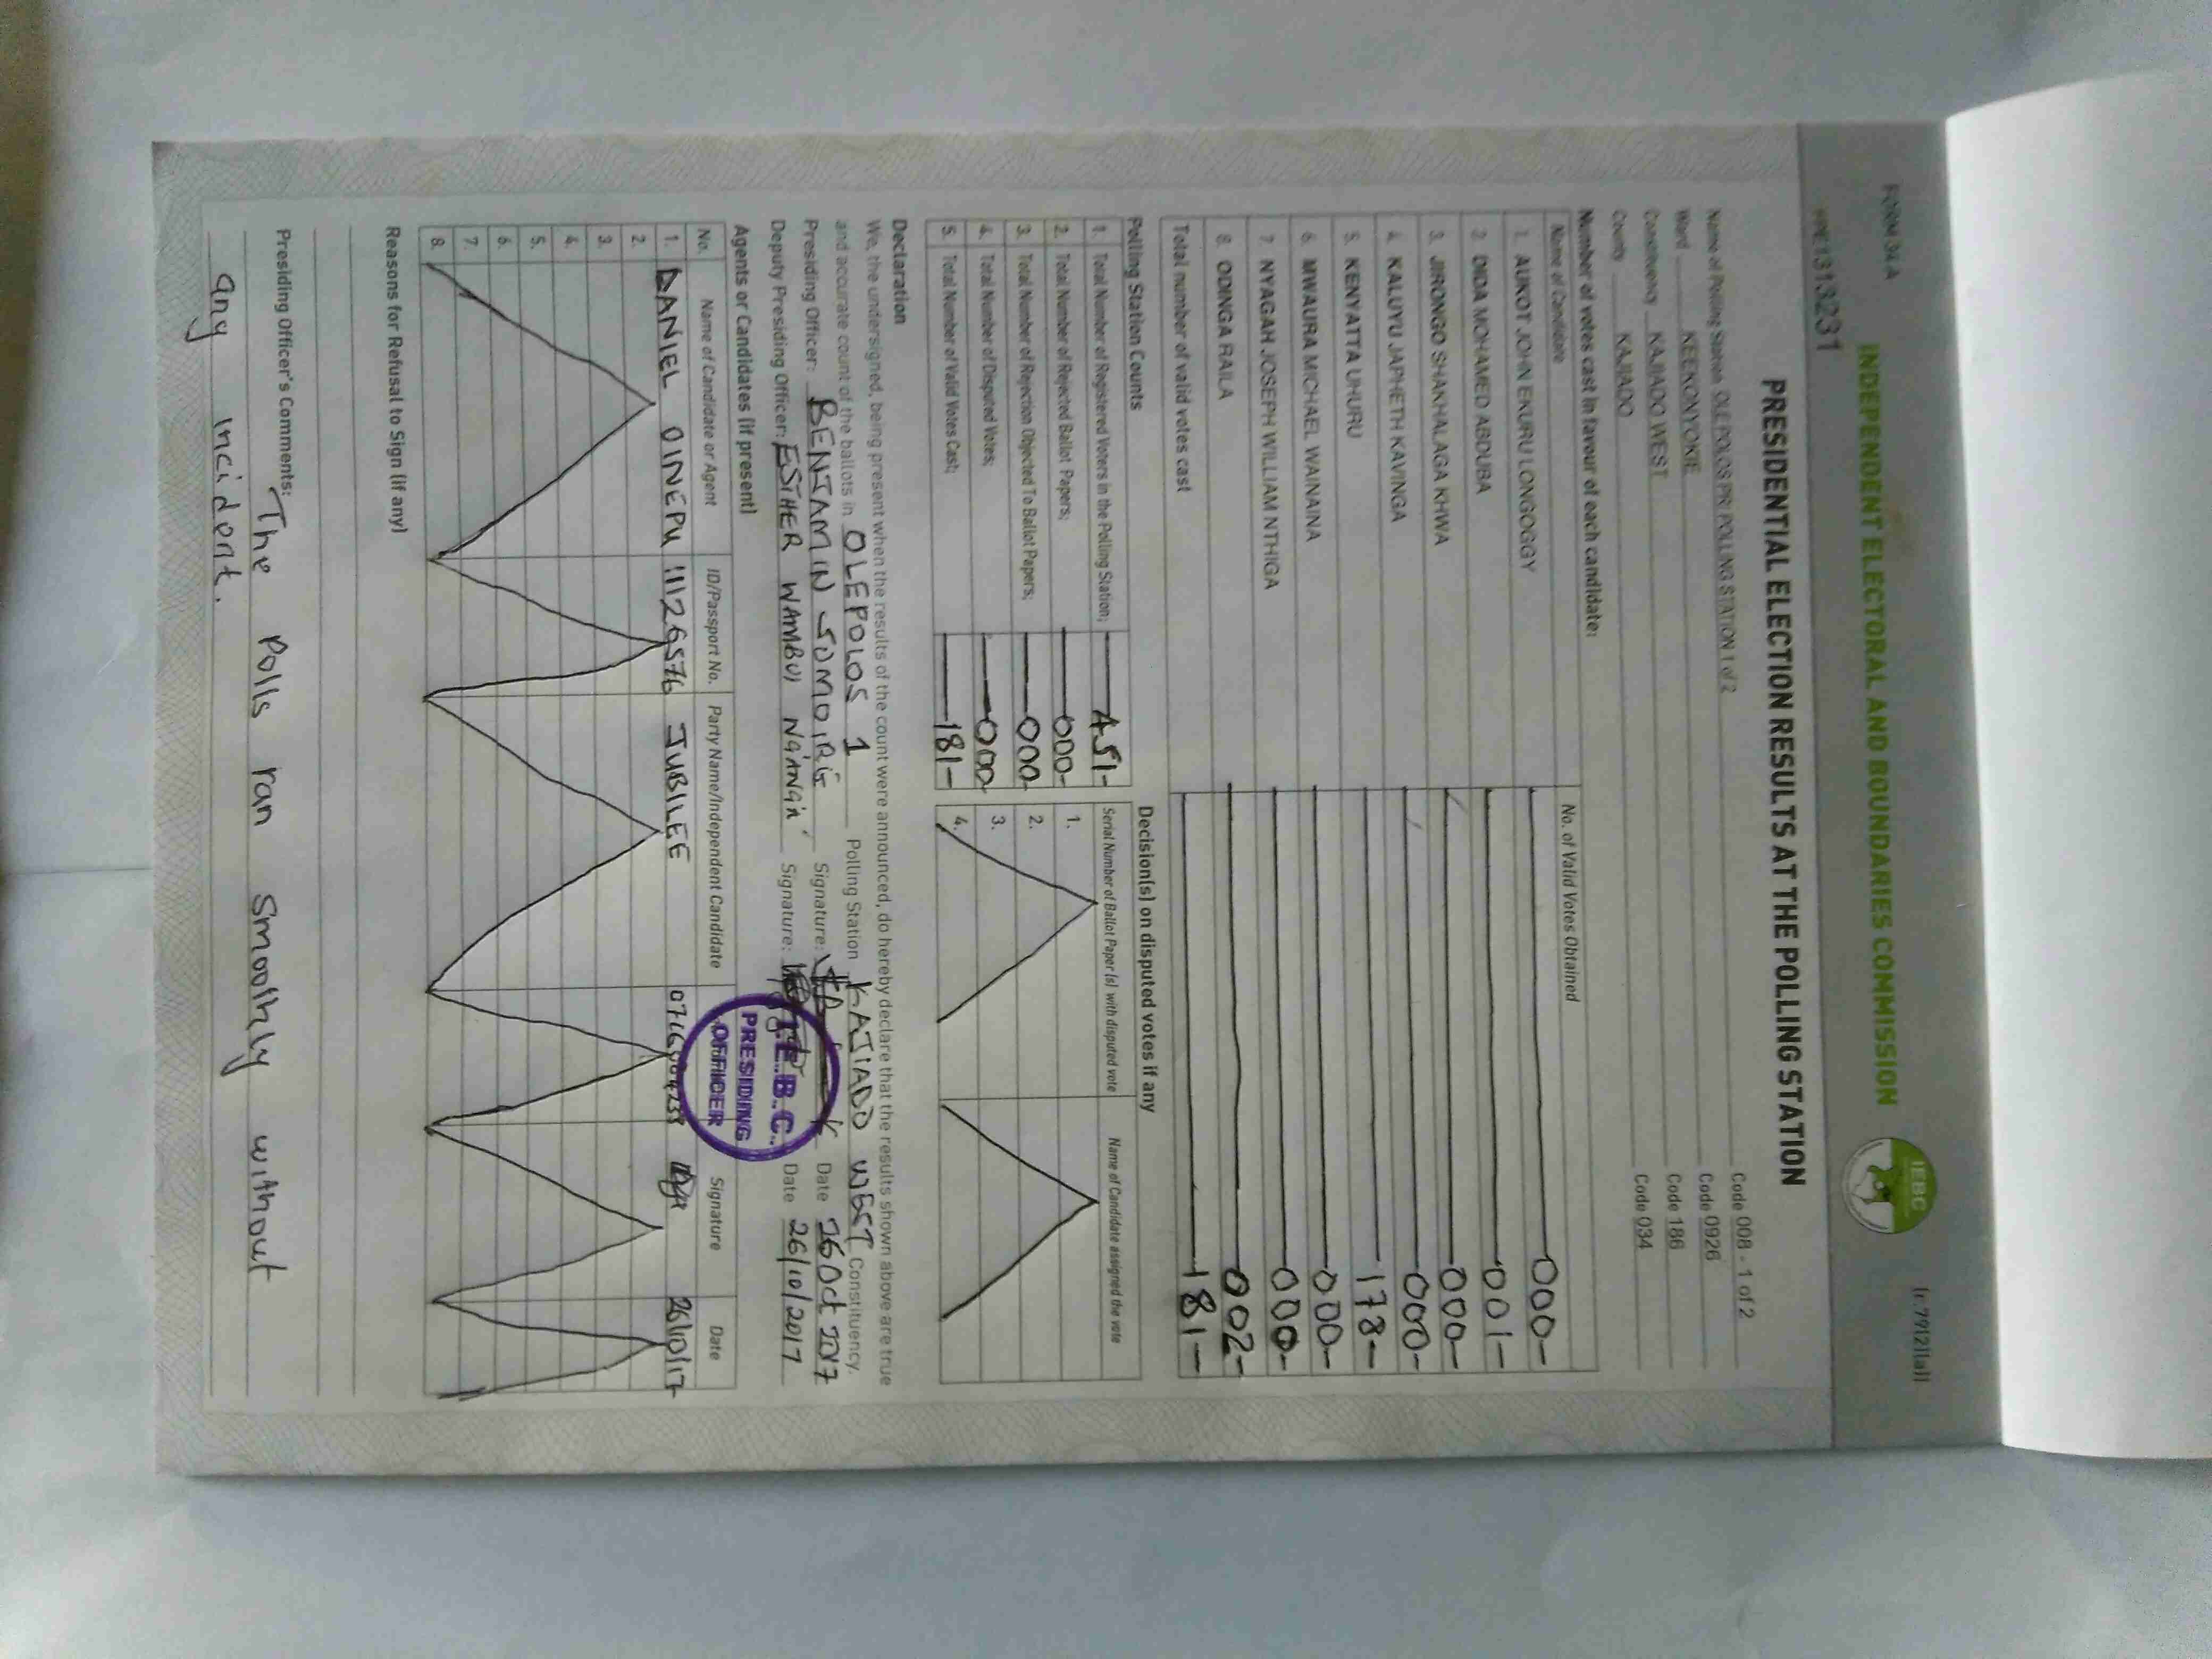 FORM 34A
(r.79(2)(a))
INDEPENDENT ELECTORAL AND BOUNDARIES COMMISSION
IEBC
1313231
PRESIDENTIAL ELECTION RESULTS AT THE POLLING STATION
Name of Polling Station OLEPOLOS PR POLLING STATION 1 of 2 Code 008 - 1 of 2
Ward KEEKONYOKIE Code 0926
Constituency KAJIADO WEST Code 186
County KAJIADO Code 034
Number of votes cast in favour of each candidate:
Name of Candidate No. of Valid Votes Obtained
1. AUKOT JOHN EKURU LONGOGGY 000
2. DIDA MOHAMED ABDUBA 001
3. JIRONGO SHAKHALAGA KHWA 000
4. KALUYU JAPHETH KAVINGA 000
5. KENYATTA UHURU 178
6. MWAURA MICHAEL WAINAINA 000
7. NYAGAH JOSEPH WILLIAM NTHIGA 000
8. ODINGA RAILA 002
Total number of valid votes cast 181
Polling Station Counts
1. Total Number of Registered Voters in the Polling Station; 451
2. Total Number of Rejected Ballot Papers; 000
3. Total Number of Rejection Objected To Ballot Papers; 000
4. Total Number of Disputed Votes; 000
5. Total Number of Valid Votes Cast; 181
Decision(s) on disputed votes if any
Serial Number of Ballot Paper (s) with disputed vote Name of Candidate assigned the vote
1.
2.
3.
4.
Declaration
We, the undersigned, being present when the results of the count were announced, do hereby declare that the results shown above are true
and accurate count of the ballots in OLEPOLOS 1 Polling Station KAJIADO WEST Constituency.
Presiding Officer: BENJAMIN Signature: Date 26 Oct 2017
Deputy Presiding Officer: ESTHER WAMBUI NG'ANG'A Signature: Date 26/10/2017
I.E.B.C.
PRESIDING
OFFICER
Agents or Candidates (if present)
No. Name of Candidate or Agent ID/Passport No. Party Name/Independent Candidate Signature Date
1. DANIEL OINEPU 11126576 JUBILEE 26/10/17
2.
3.
4.
5.
6.
7.
8.
Reasons for Refusal to Sign (if any)
Presiding Officer's Comments: The Polls ran smoothly without
any incident.